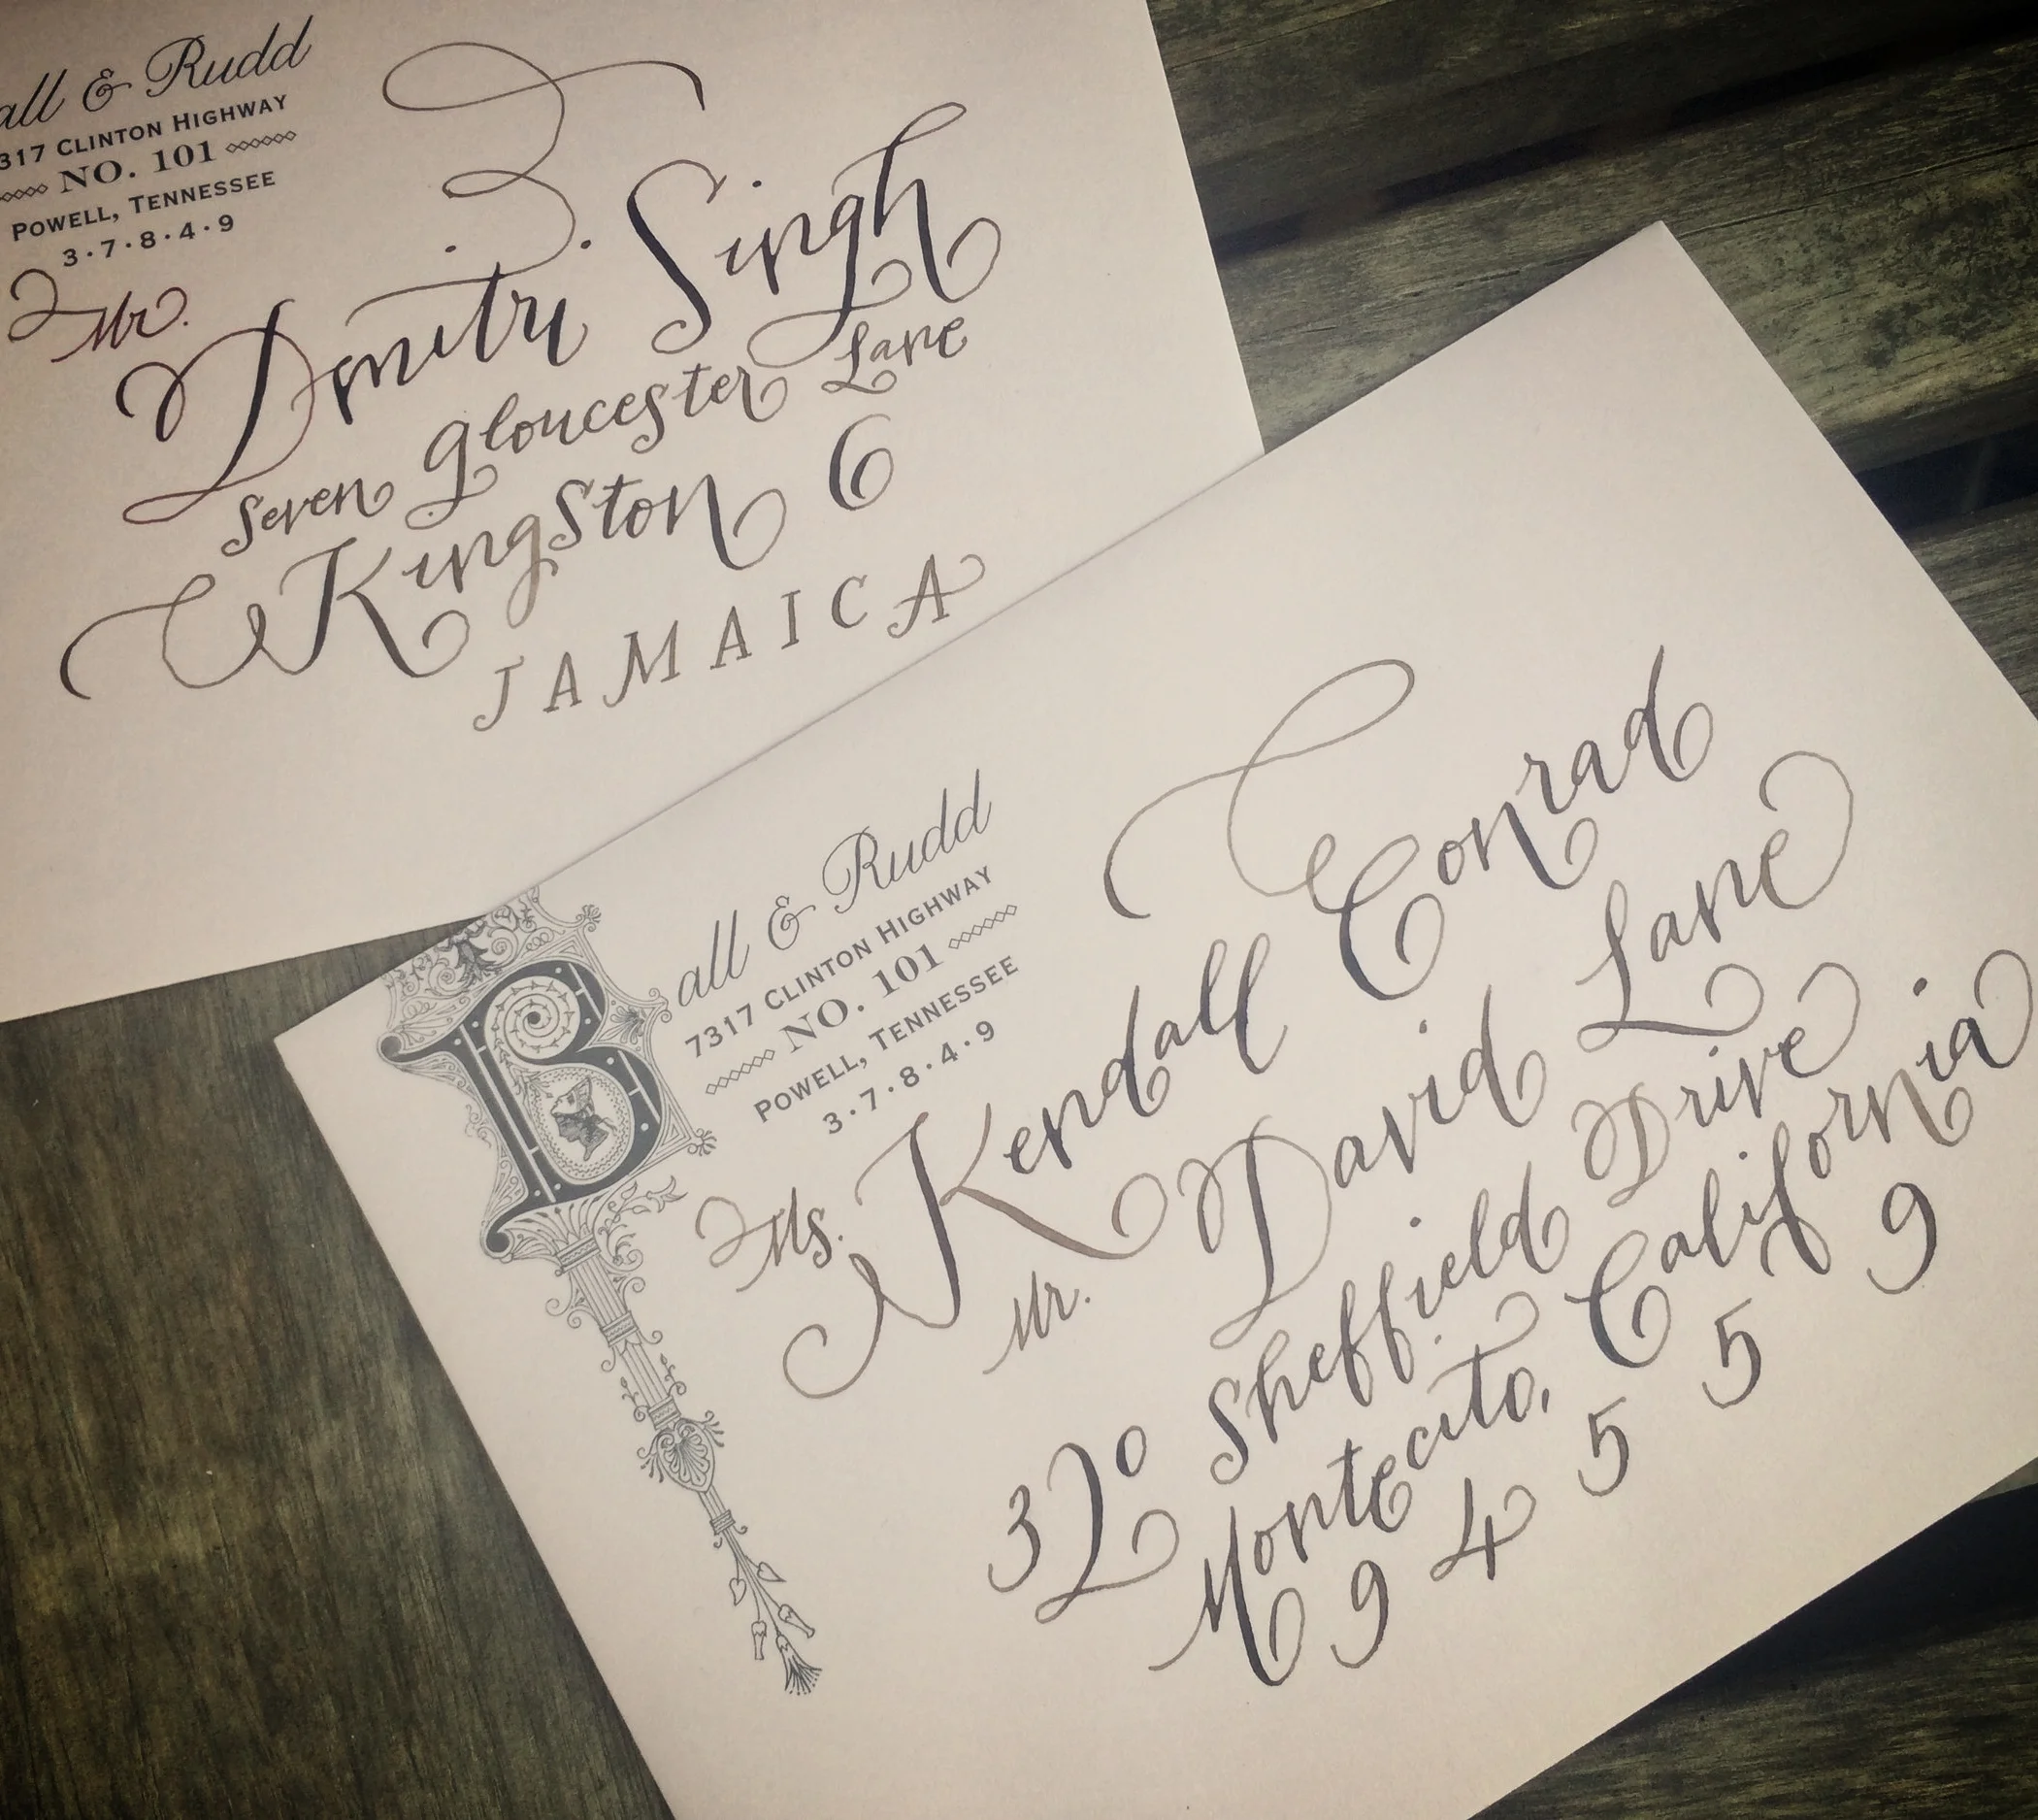 all & Rudd
317 CLINTON HIGHWAY
NO. 101
POWELL, TENNESSEE
3·7·8·4·9
Mr.
Dmitri Singh
Seven Gloucester Lane
Kingston 6
JAMAICA
Ball & Rudd
7317 CLINTON HIGHWAY
NO. 101
POWELL, TENNESSEE
3·7·8·4·9
Ms. Kendall Conrad
Mr. David Lane
320 Sheffield Drive
Montecito, California
94559